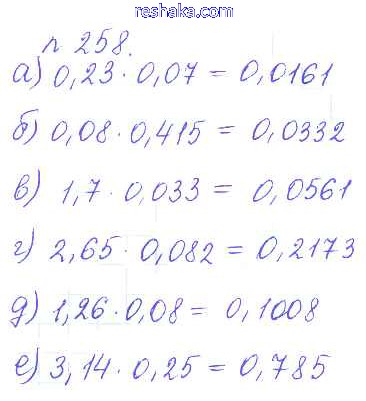 reshaka.com
n 258.
а) 0,23 · 0,07 = 0,0161
б) 0,08 · 0,415 = 0,0332
в) 1,7 · 0,033 = 0,0561
г) 2,65 · 0,082 = 0,2173
д) 1,26 · 0,08 = 0,1008
е) 3,14 · 0,25 = 0,785